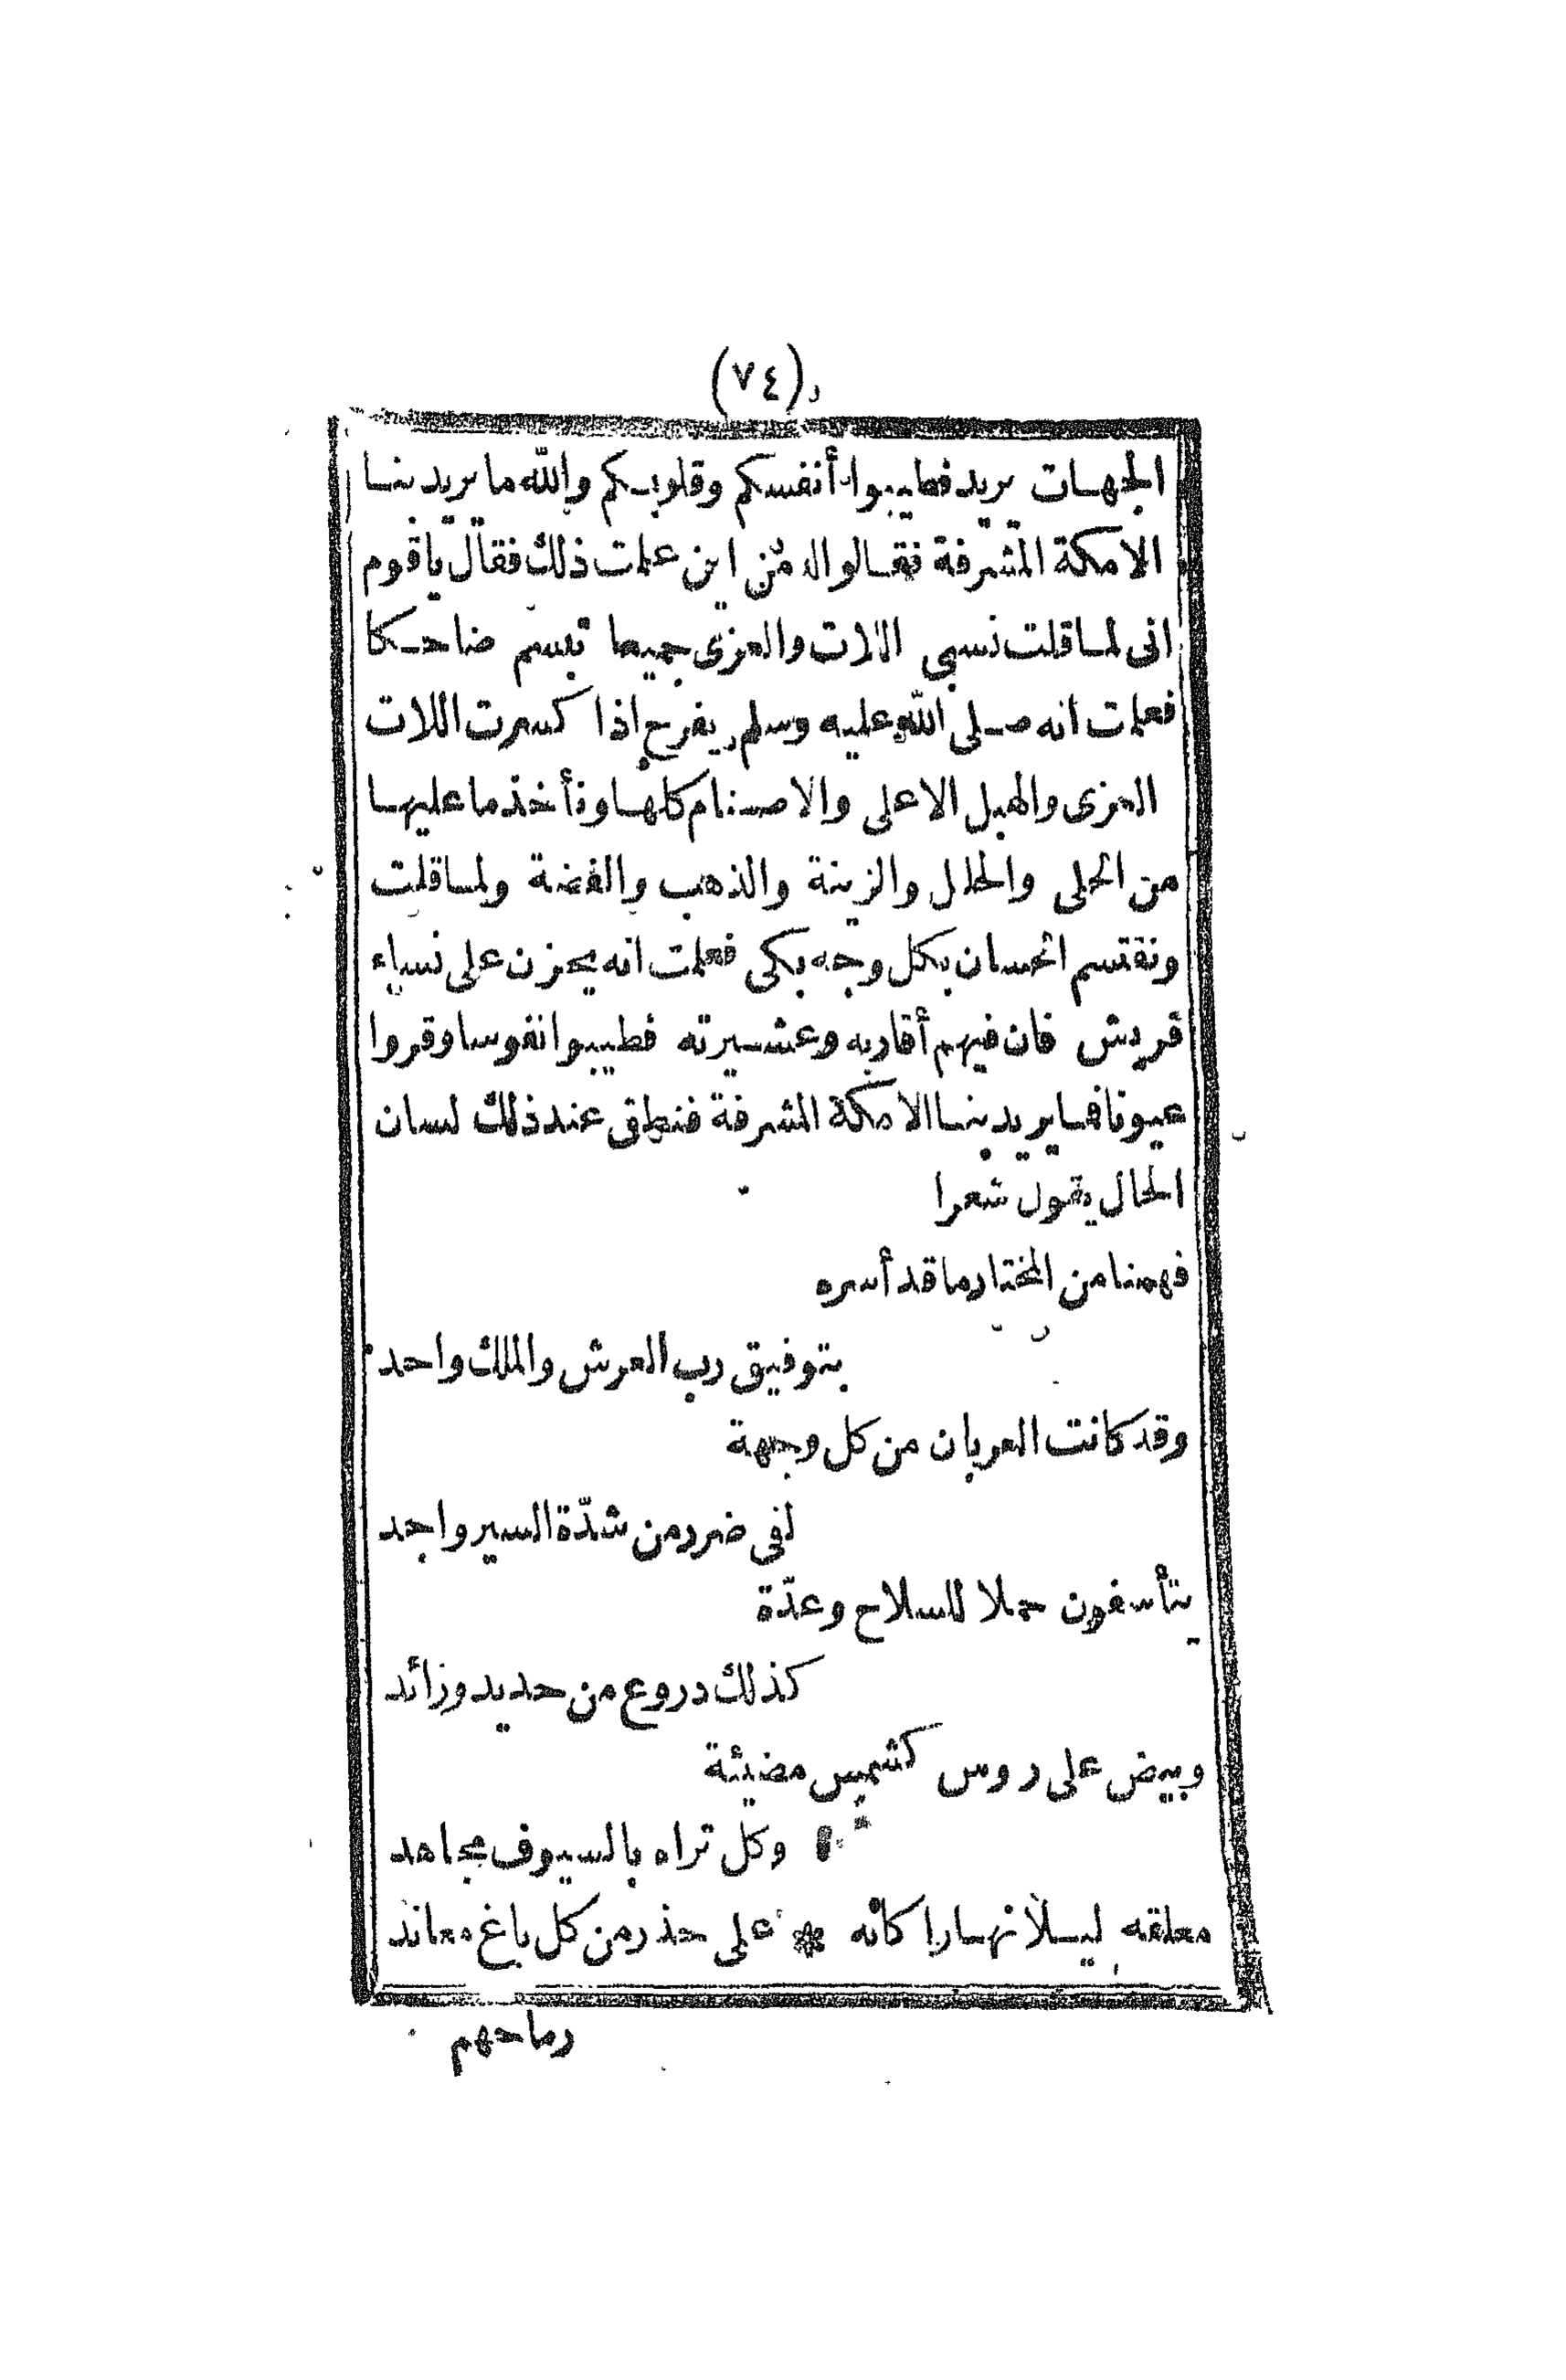 (٧٤)
الجهات يريد فطيبوا أنفسكم وقلوبكم والله ما يريد بنا
الا مكة المشرفة فقالوا له من اين علمت ذلك فقال يا قوم
انى لما قلت نسبى اللات والعزى جميعا تبسم ضاحكا
فعلمت انه صلى الله عليه وسلم يفرح اذا كسرت اللات
العزى والهبل الاعلى والاصنام كلها ونأخذ ما عليها
من الحلى والحلل والزينة والذهب والفضة ولما قلت
ونقتسم الحسان بكل وجه بكى فعلمت انه يحزن على نساء
قريش فان فيهم أقاربه وعشيرته فطيبوا نفوسا وقروا
عيونا فما يريد بنا الا مكة المشرفة فنطق عند ذلك لسان
الحال يقول شعرا
فهمنا من المختار ما قد أسره
بتوفيق رب العرش والملك واحد
وقد كانت العربان من كل وجهة
لفى ضرر من شدّة السير واجد
يتأسفون حملا للسلاح وعدّة
كذلك دروع من حديد وزائد
وبيض على روس كشمس مضيئة
وكل تراه بالسيوف مجاهد
معلقه ليلا نهارا كانه * على حذر من كل باغ معاند
رماحهم